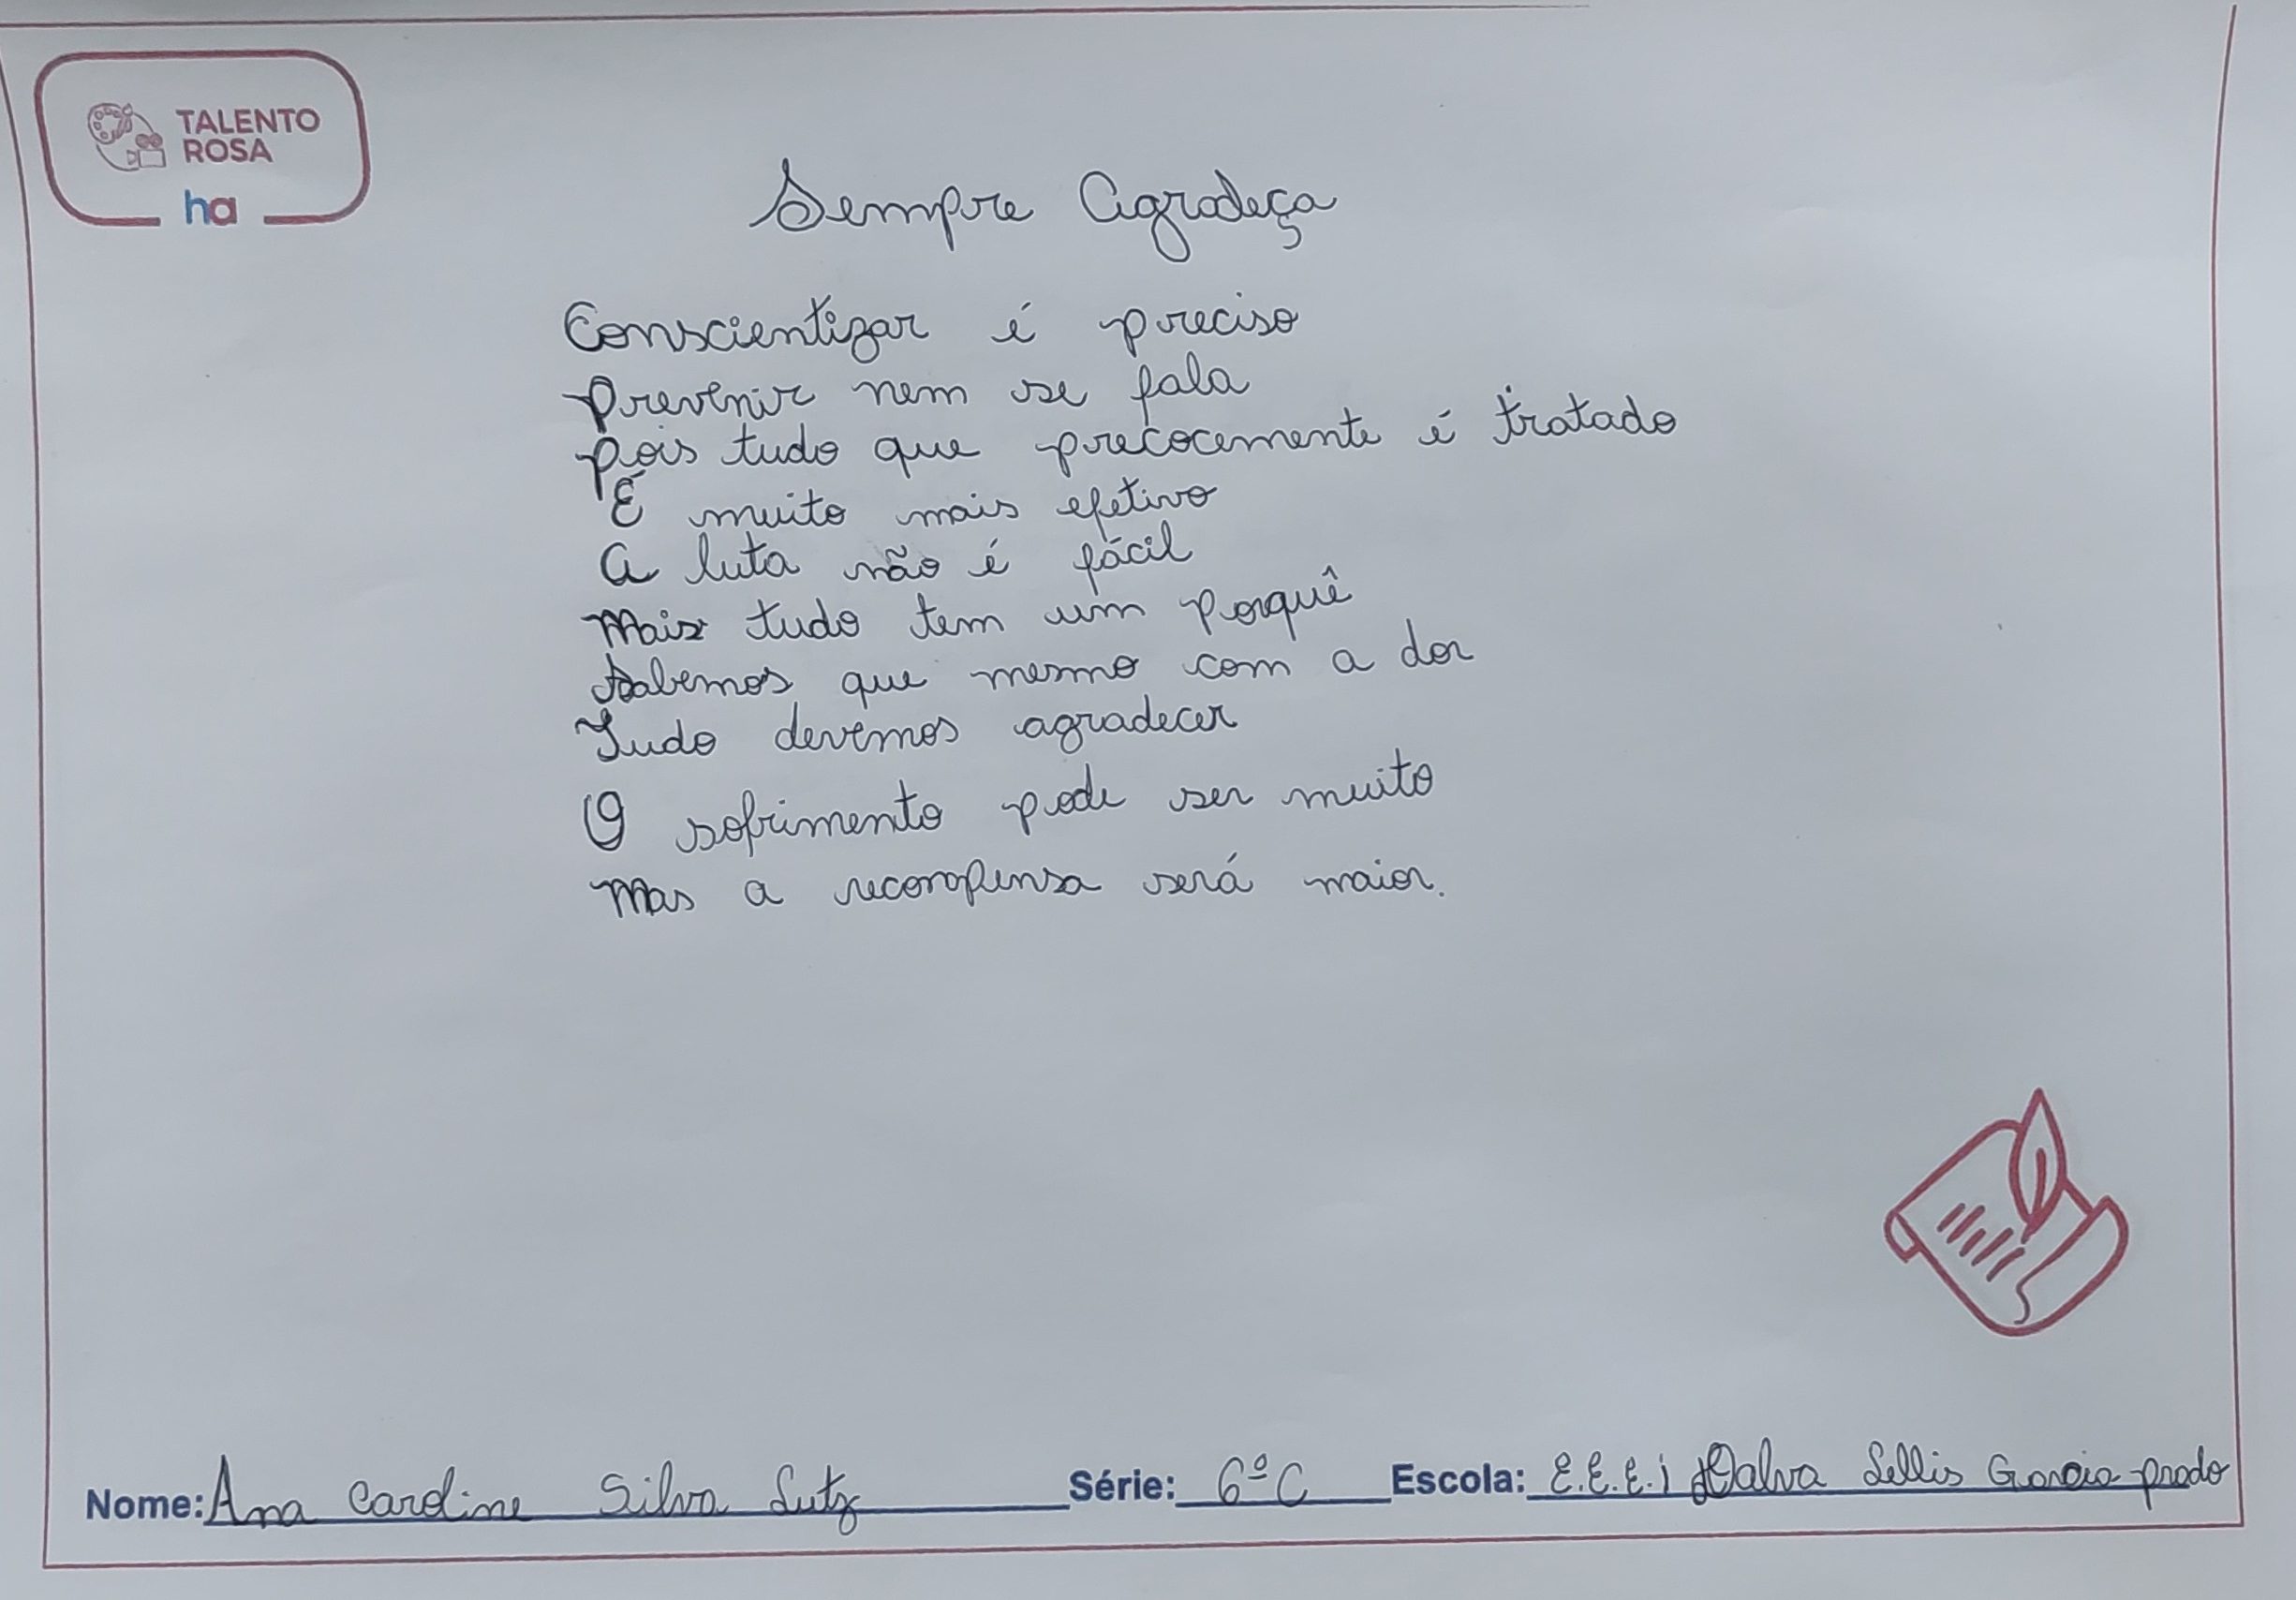 TALENTO
ROSA
ha
Sempre Agradeça
Conscientizar é preciso
Prevenir nem se fala
pois tudo que precocemente é tratado
É muito mais efetivo
A luta não é fácil
Mais tudo tem um porquê
Sabemos que mesmo com a dor
Tudo devemos agradecer
O sofrimento pode ser muito
Mas a recompensa será maior.
Nome: Ana Caroline Silva Lutz Série: 6º C Escola: E.E.E.i Dalva Lellis Garcia prado